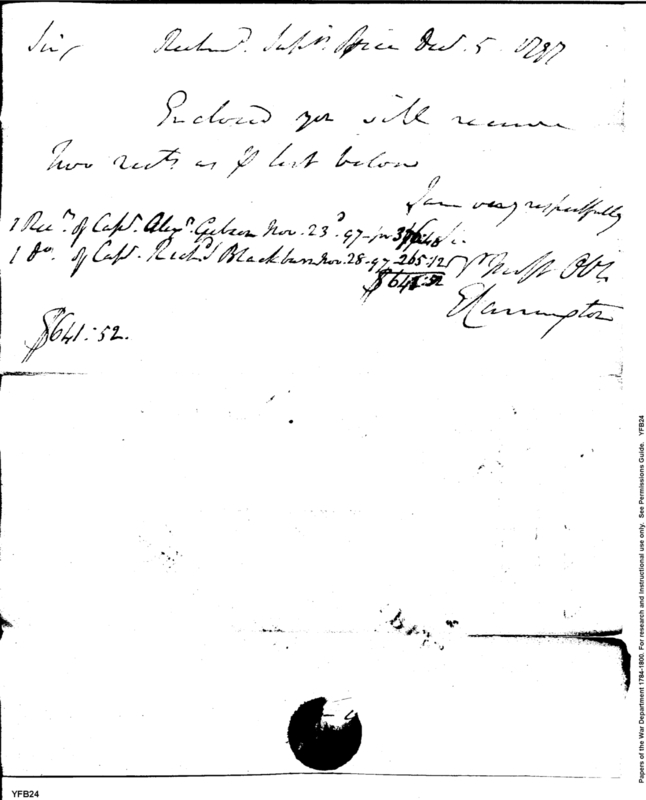 Sir, Richmd. Supvrs. Office Decr. 5 1797
Enclosed you will receive
Two rects. as ⅌ list below
I am very respectfully
1 Rect. of Capt. Alexr. Gibson Nov. 23d 97 - for 376.40
1 Do. of Capt. Richd. Blackburn Nov. 28 - 97 - 265.12
Yr Most Obt.
$641:52
ECarrington
$641:52.
Papers of the War Department 1784-1800. For research and instructional use only. See Permissions Guide. YFB24
YFB24